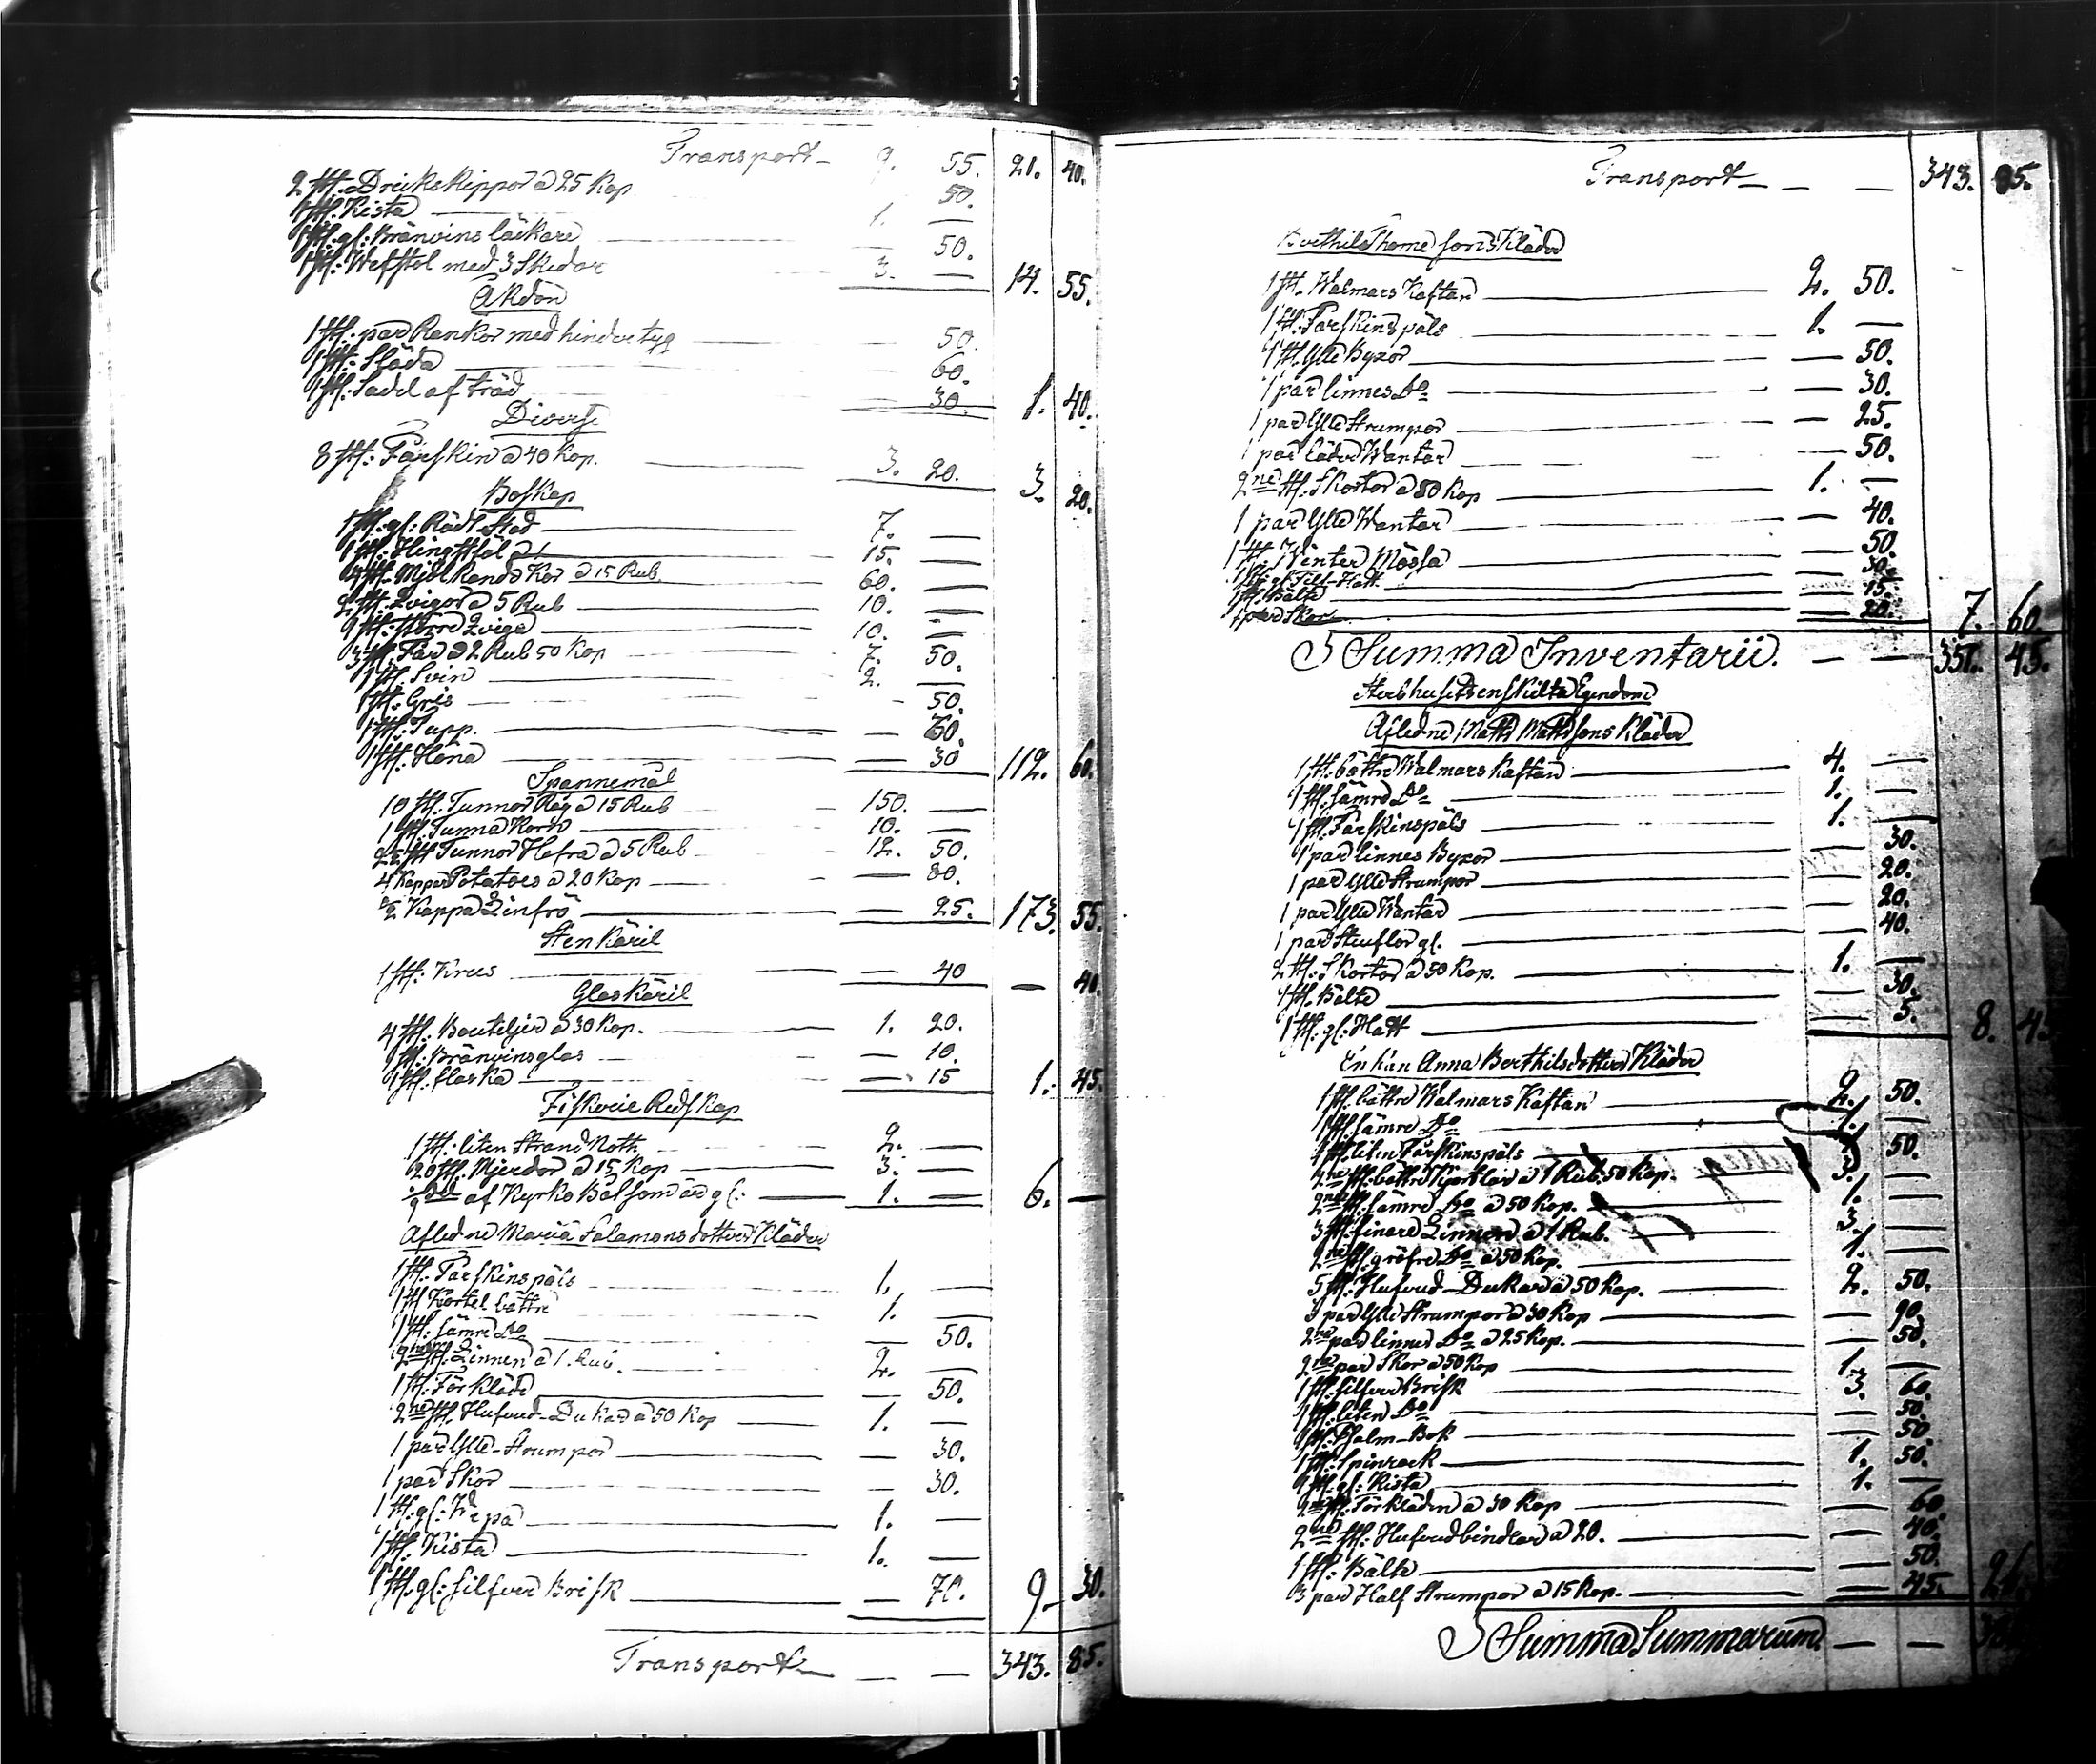 Transport 9. 55. 20. 40.
2 st: Drickskippor a 25 Kop 50.
1 st: Kista 1. —
1 st: gl: Bränvins läckare — 50.
1 st: Wefstol med 3 Skedar 3. — 14. 55.
Åkdon
1 st: par Rankor med hindertyg — 50.
1 st: Släda — 60.
1 st: Sadel af träd — 30. 1. 40.
Diverse
8 st: Fårskin a 40 Kop. 3. 20. 3. 20.
Boskap
1 st: gl: Rödt Stod 7. —
1 st: Hingstföl 15. —
4 st: Mjölkande Kor a 15 Rub. 60. —
2 st: Qvigor a 5 Rub 10. —
1 st: större Qviga 10. —
3 st: Får a 2 Rub 50 Kop 7. 50.
1 st: Svin 2. —
1 st: Gris — 50.
1 st: Tupp. — 30.
1 st: Höna — 30 112. 60.
Spannemål
10 st: Tunnor Råg a 15 Rub 150. —
1 st: Tunna Korn 10. —
2½ st Tunnor Hafra a 5 Rub 12. 50.
4 Kappar Potatoes a 20 Kop — 80.
½ Kappa Linfrö — 25. 173. 55.
Stenkäril
1 st: Krus — 40 — 40.
Glaskäril
4 st: Bouteljer a 30 Kop. 1. 20.
1 st: Bränvinsglas — 10.
1 st: flaska — 15 1. 45.
Fiskerie Redskap
1 st: liten Strand Noth 2. —
20 st: Mjerdor a 15 Kop 3. —
af Kyrko Båt som är gl: 1. — 6. —
Afledne Maria Salamonsdotters Kläder
1 st: Fårskinspäls 1. —
1 st Kortel bättre 1. —
1 st: sämre Do — 50.
2ne st: Linnen a 1. Rub. 2. —
1 st: Förkläde — 50.
2ne st. Hufvud-Dukar a 50 Kop 1. —
1 par Ylle-Strumpor — 30.
1 par Skor — 30.
1 st: gl: Kappa 1. —
1 st: Kista 1. —
1 st. gl: silfver Brisk — 70. 9. 30.
Transport — — 343. 85.
Transport — — 343. 85.
Berthil Thomessons Kläder
1 st. Walmars Kaftan 2. 50.
1 st: Fårskins päls 1. —
1 st. Ylle Byxor — 50.
1 par linnes Do — 30.
1 par Ylle Strumpor — 25.
1 par läder Wantar — 50.
2ne st. Skortor a 50 Kop 1. —
1 par Ylle Wantar — 40.
1 st. Winter Mössa — 50.
1 st: gl: Filt-Hatt — 30.
1 st. Bälte — 15.
1 par Skor — 20. 7. 60.
Summa Inventarii. — — 351. 45.
Sterbhusets enskilta Egendom
Afledne Matts Mattssons Kläder
1 st: bättre Walmars Kaftan 4. —
1 st: sämre Do 1. —
1 st. Fårskinspäls 1. —
1 par linnes Byxor — 30.
1 par Ylle Strumpor — 20.
1 par Ylle Wantar — 20.
1 par Stuflor gl. — 40.
2 st: Skortor a 50 Kop. 1. —
1 st. Bälte — 30.
1 st. gl: Hatt — 5. 8. 45
Enkan Anna Berthilsdotters Kläder
1 st. bättre Walmars Kaftan 2. 50.
1 st. sämre Do 1. —
1 st. liten Fårskinspäls — 50.
2ne st: bättre Kjortlar a 1 Rub. 50 Kop. 3. —
2ne st. sämre Do a 50 Kop. 1. —
3 st: finare Linnen a 1 Rub. 3. —
2ne st. gröfre Do a 50 Kop. 1. —
5 st. Hufvud-Dukar a 50 Kop. 2. 50.
3 par Ylle Strumpor a 30 Kop — 90.
2ne par linnes Do a 25 Kop. — 50.
2ne par Skor a 50 Kop 1. —
1 st. silfver Brisk 3. 60.
1 st: liten Do — 50.
1 st: Psalm-Bok — 50.
1 st: Spinrock 1. 50.
1 st: gl: Kista 1. —
2ne st: Förkläden a 30 Kop — 60
2ne st: Hufvudbindlar a 20. — 40.
1 st: Bälte — 50.
3 par Half Strumpor a 15 Kop. — 45.
Summa Summarum — —